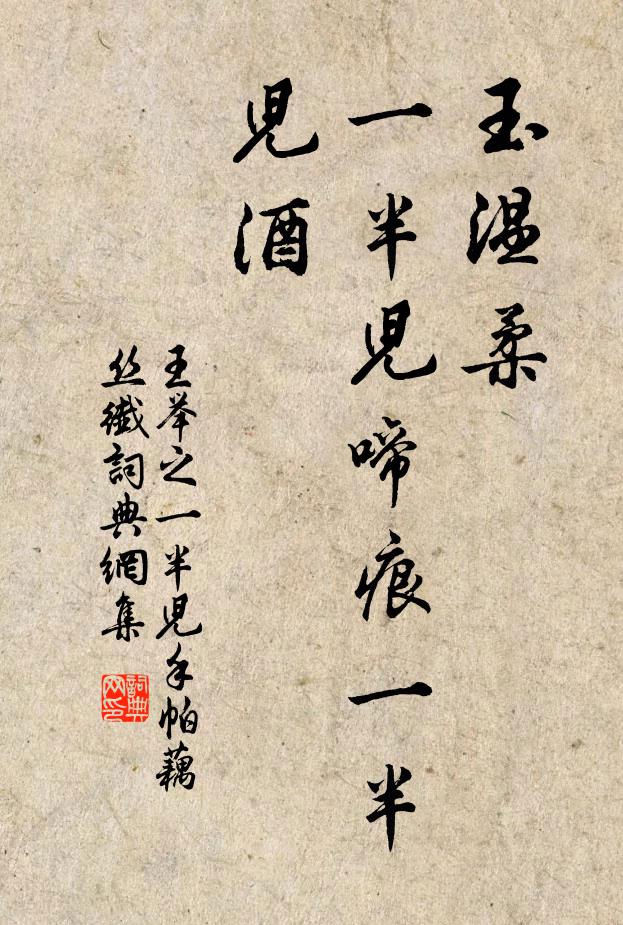 玉温柔
一半兒啼痕一半
兒酒
王举之一半兒手帕藕
丝纖詞典網集
詞典
网印